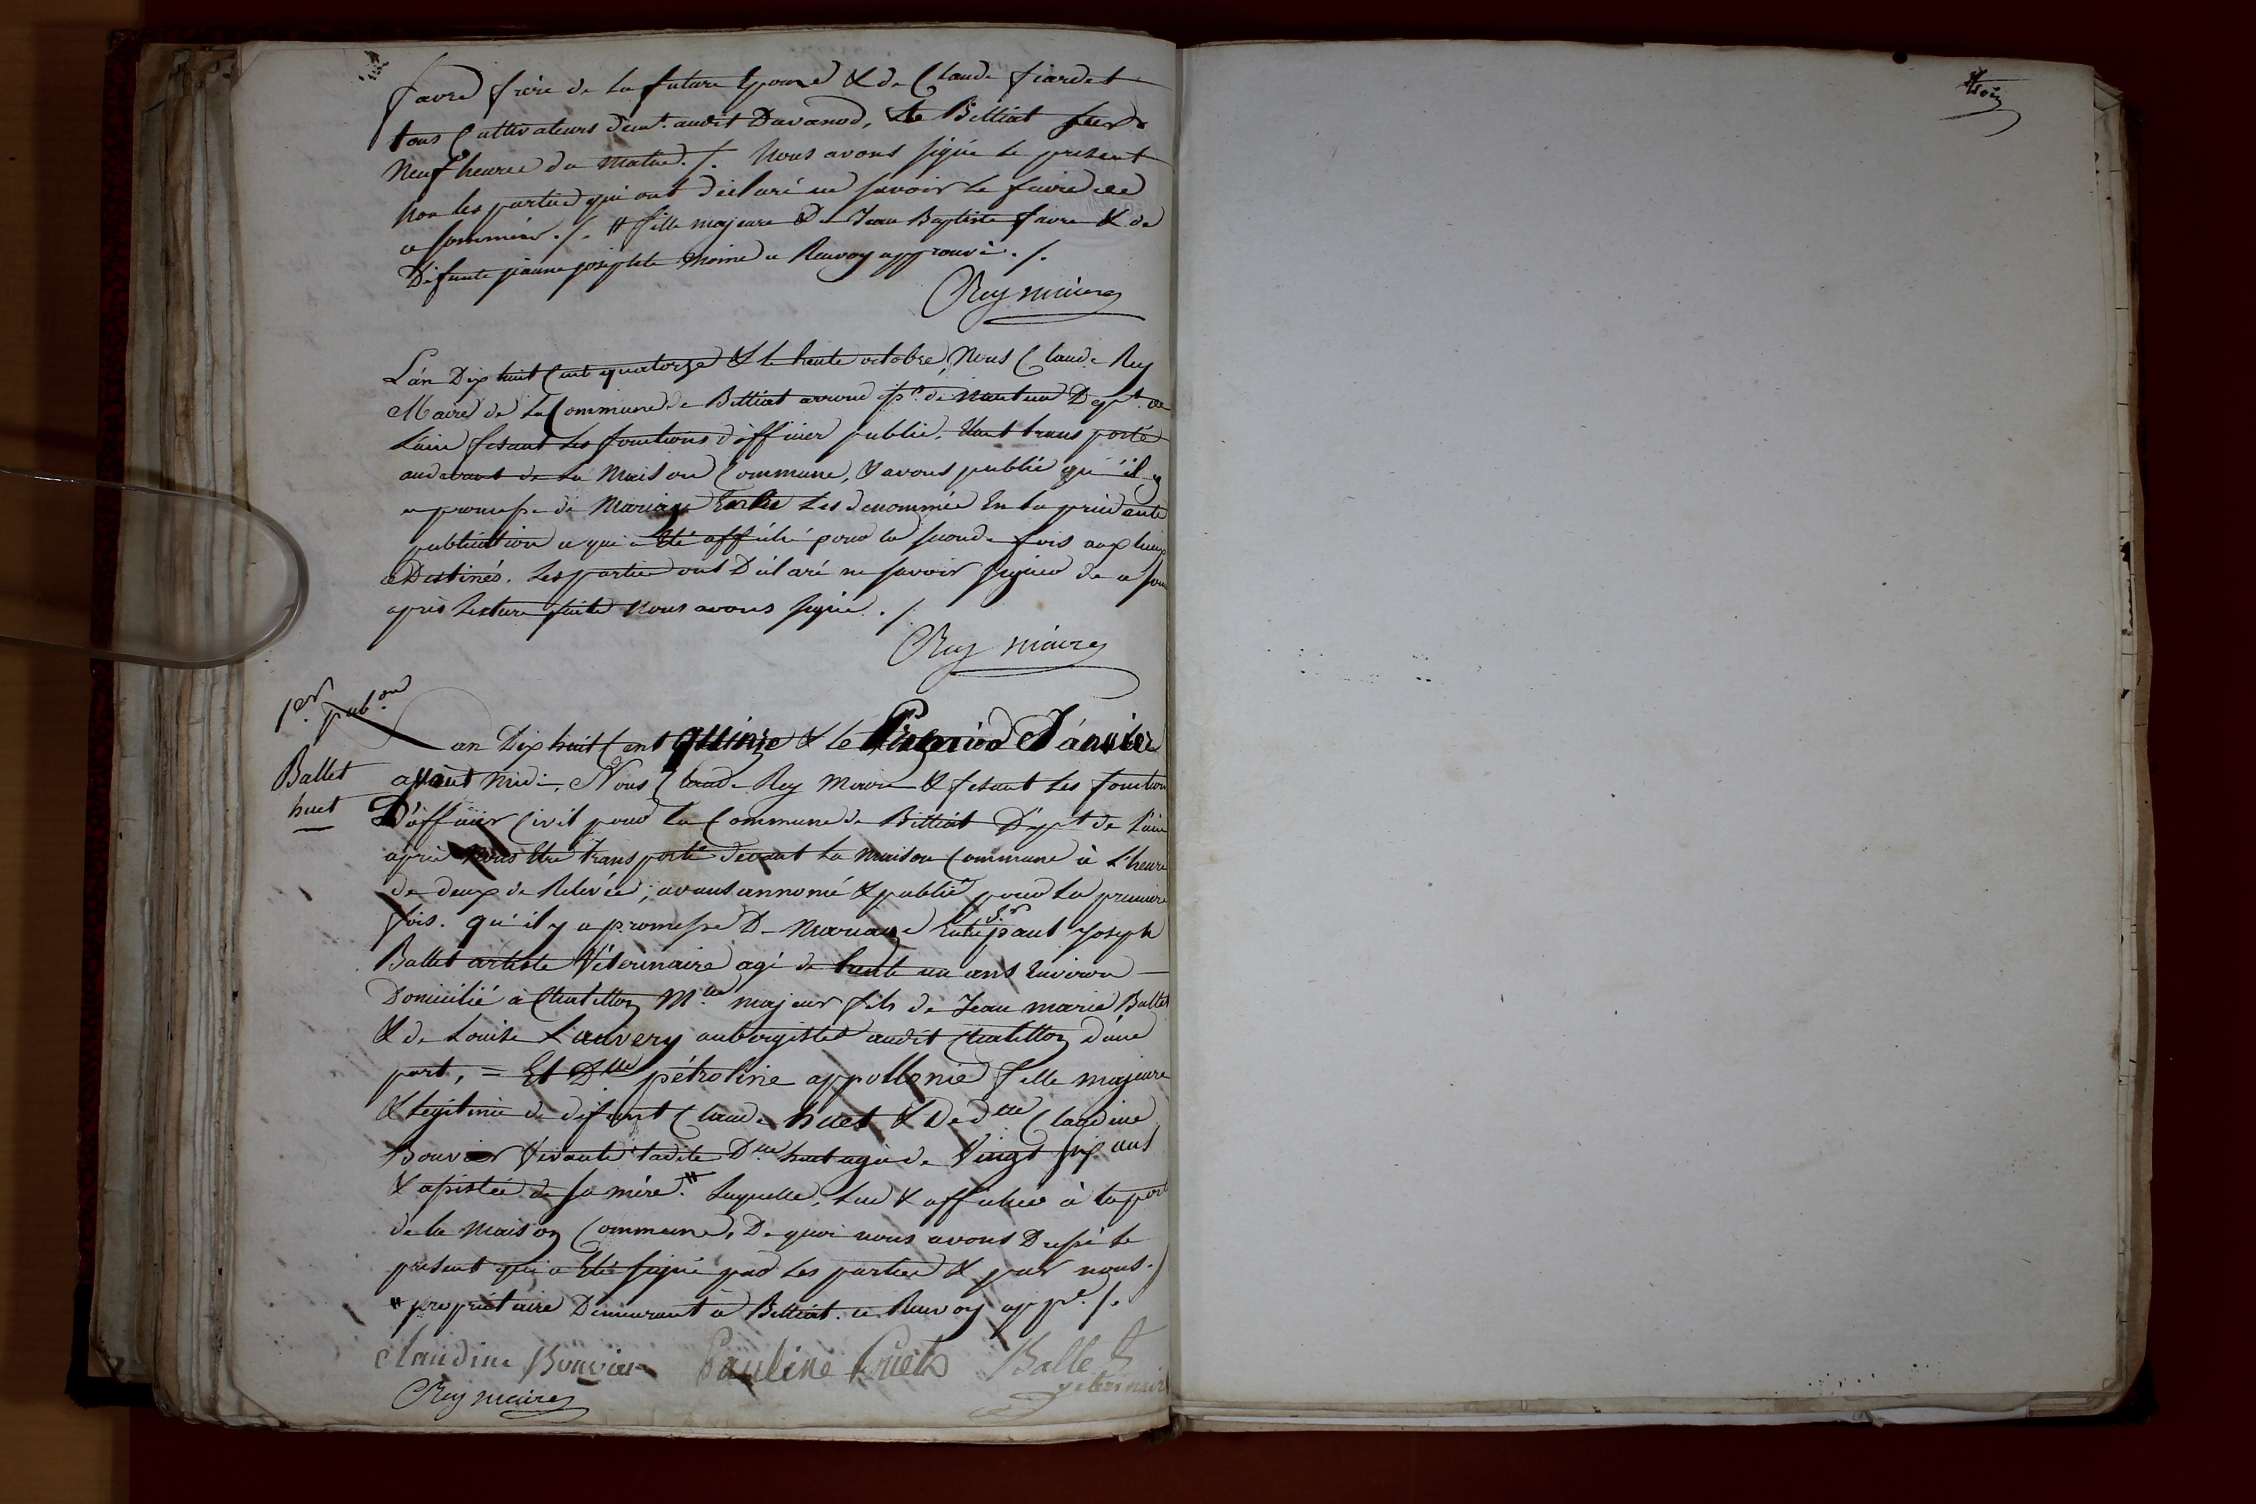 favre frere de la future Epouse & de Claude fiardet
tous Cultivateurs demt. audit Davanod, Billiat
Neuf heures du matin ./. Nous avons signé le present
non les parties qui ont déclaré ne savoir le faire de
ce sommées ./. # fille majeure & De Jean Baptiste favre & de
Défunte jeanne josephte moine ce Renvoy approuvé ./.
Rey maire
L'an Dix huit Cent quatorze & le trente octobre, Nous Claude Rey
Maire de La Commune de Billiat arrond.t de Nantua Dept. de
L'ain fesant Les fonctions d'officier public. transporté
au devant de La Maison Commune, & avons publié qu'il y
a promesse de Mariage Entre Les denommés En la précédante
publication ce qui a Eté affiché pour la seconde fois aux lieux
a Destinés. Les parties ont Déclaré ne savoir signer de ce som
après Lecture faite Nous avons signé ./.
Rey maire
1er. pub.on
L'an Dix huit Cent quinze & le Premier Janvier
Ballet
avant midi, Nous Claude Rey Maire & fesant Les fonction
huet
D'officier Civil pour La Commune de Billiat Dept de L'ain
après nous Etre transporté devant La maison Commune à L'heure
de deux de Relevée, avons annoncé & publié pour La premiere
fois. qu'il y a promesse De Mariage Entre Sr. paul Joseph
Ballet artiste Véterinaire agé de trente un ans Environ
Domicilié à Chatillon Mlle majeur fils de Jean marie Ballet
& de Louise Lauvery aubergistes audit Chatillon d'une
part, = Et Dlle pétroline appollonie fille majeure
& Legitime de defunt Claude huet & De dlle Claudine
Bouvier Vivante ladite Dlle huet agée de Vingt six ans
& assistée de sa mère # Laquelle, Lue & affichée à la port
de la Maison Commune, De quoi nous avons Dressé le
présent qui a Eté signé par Les parties & par nous.
# propriétaire Demeurant à Billiat. ce Renvoy appé ./.
Claudine Bouvier Pauline huet Ballet
veterinaire
Rey maire